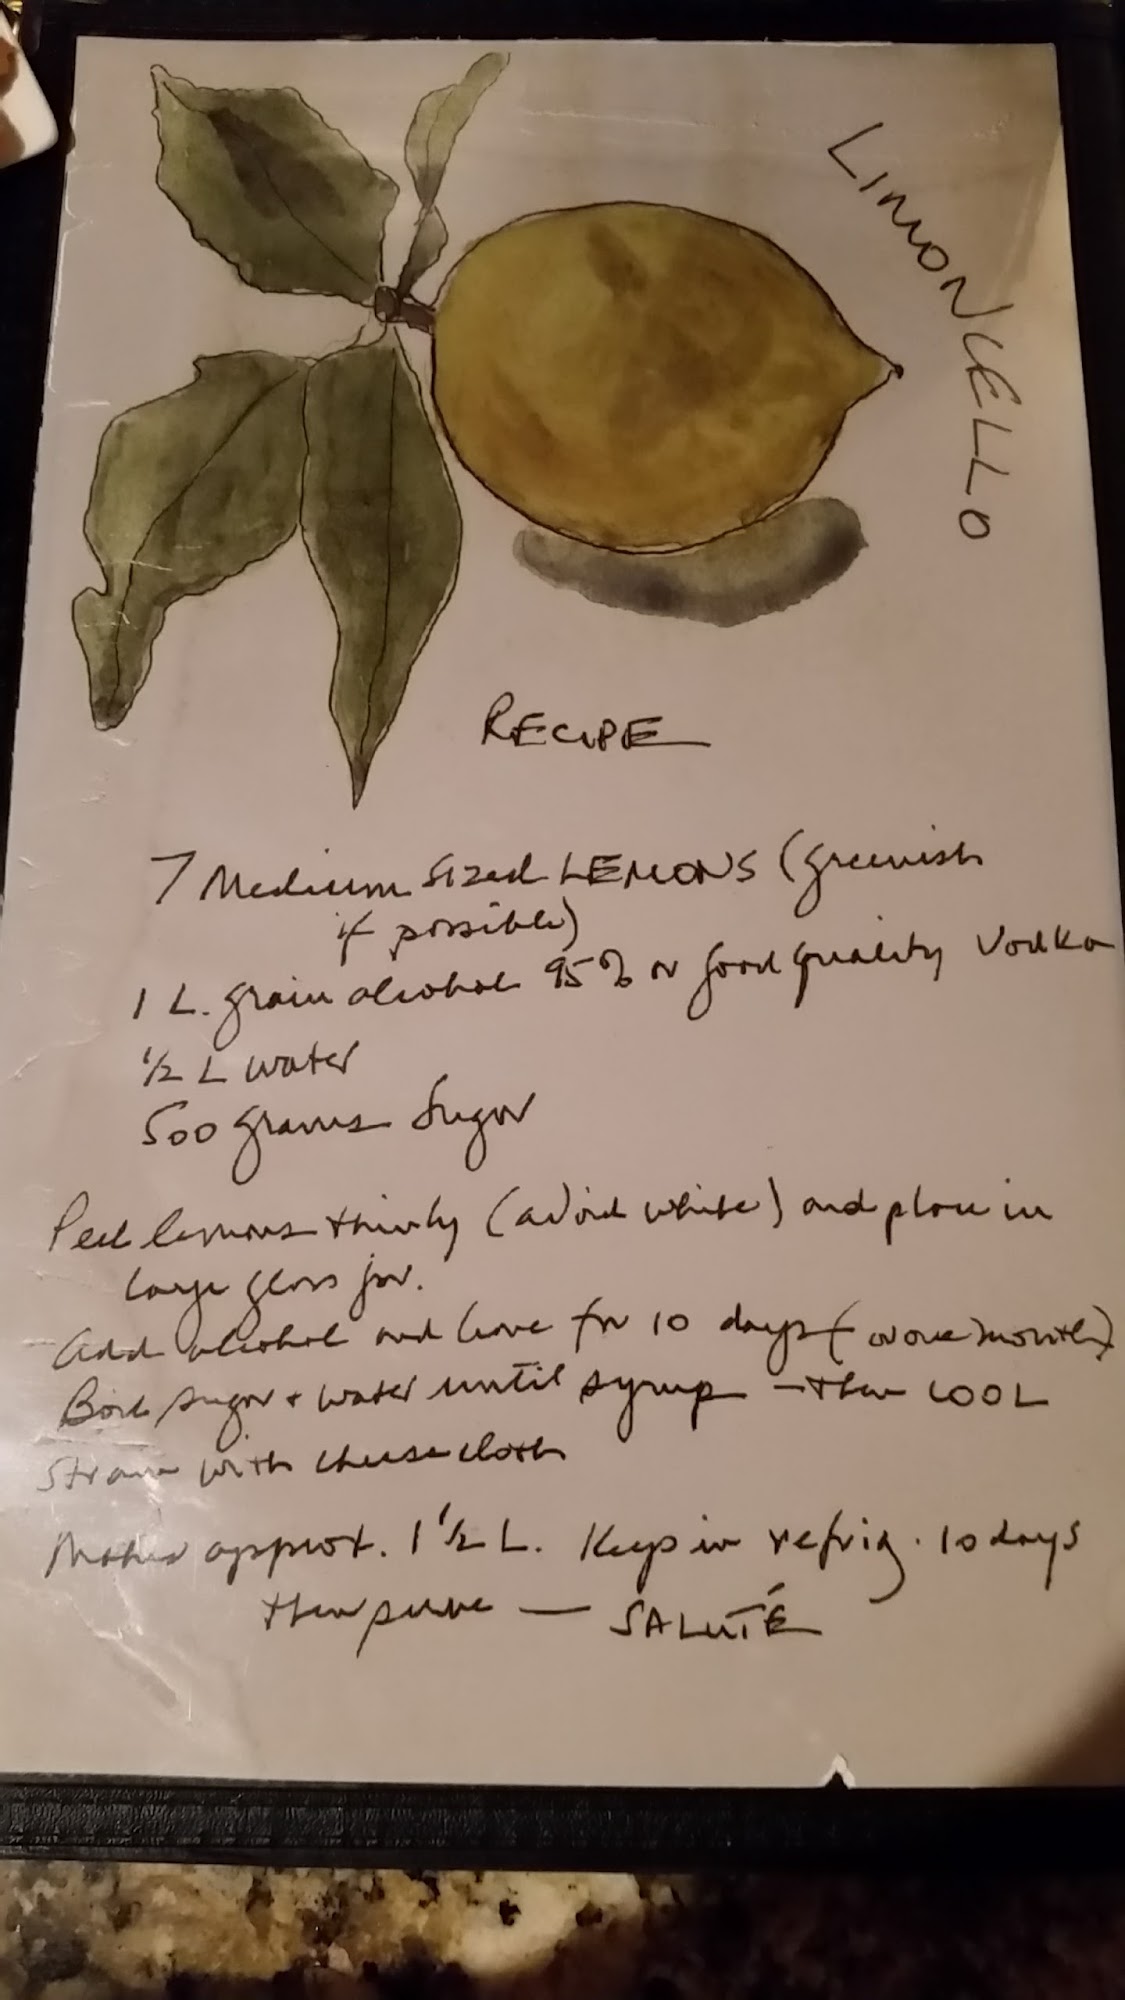 LIMONCELLO
RECIPE
7 Medium sized LEMONS (greenish
if possible)
1 L. grain alcohol 95% or good quality Vodka
1/2 L water
500 grams sugar
Peel lemons thinly (avoid white) and place in
large glass jar.
Add alcohol and leave for 10 days (or one month)
Boil sugar + water until syrup - then COOL
Strain with cheesecloth
Makes approx. 1 1/2 L. Keep in refrig. 10 days
then serve — SALUTÉ